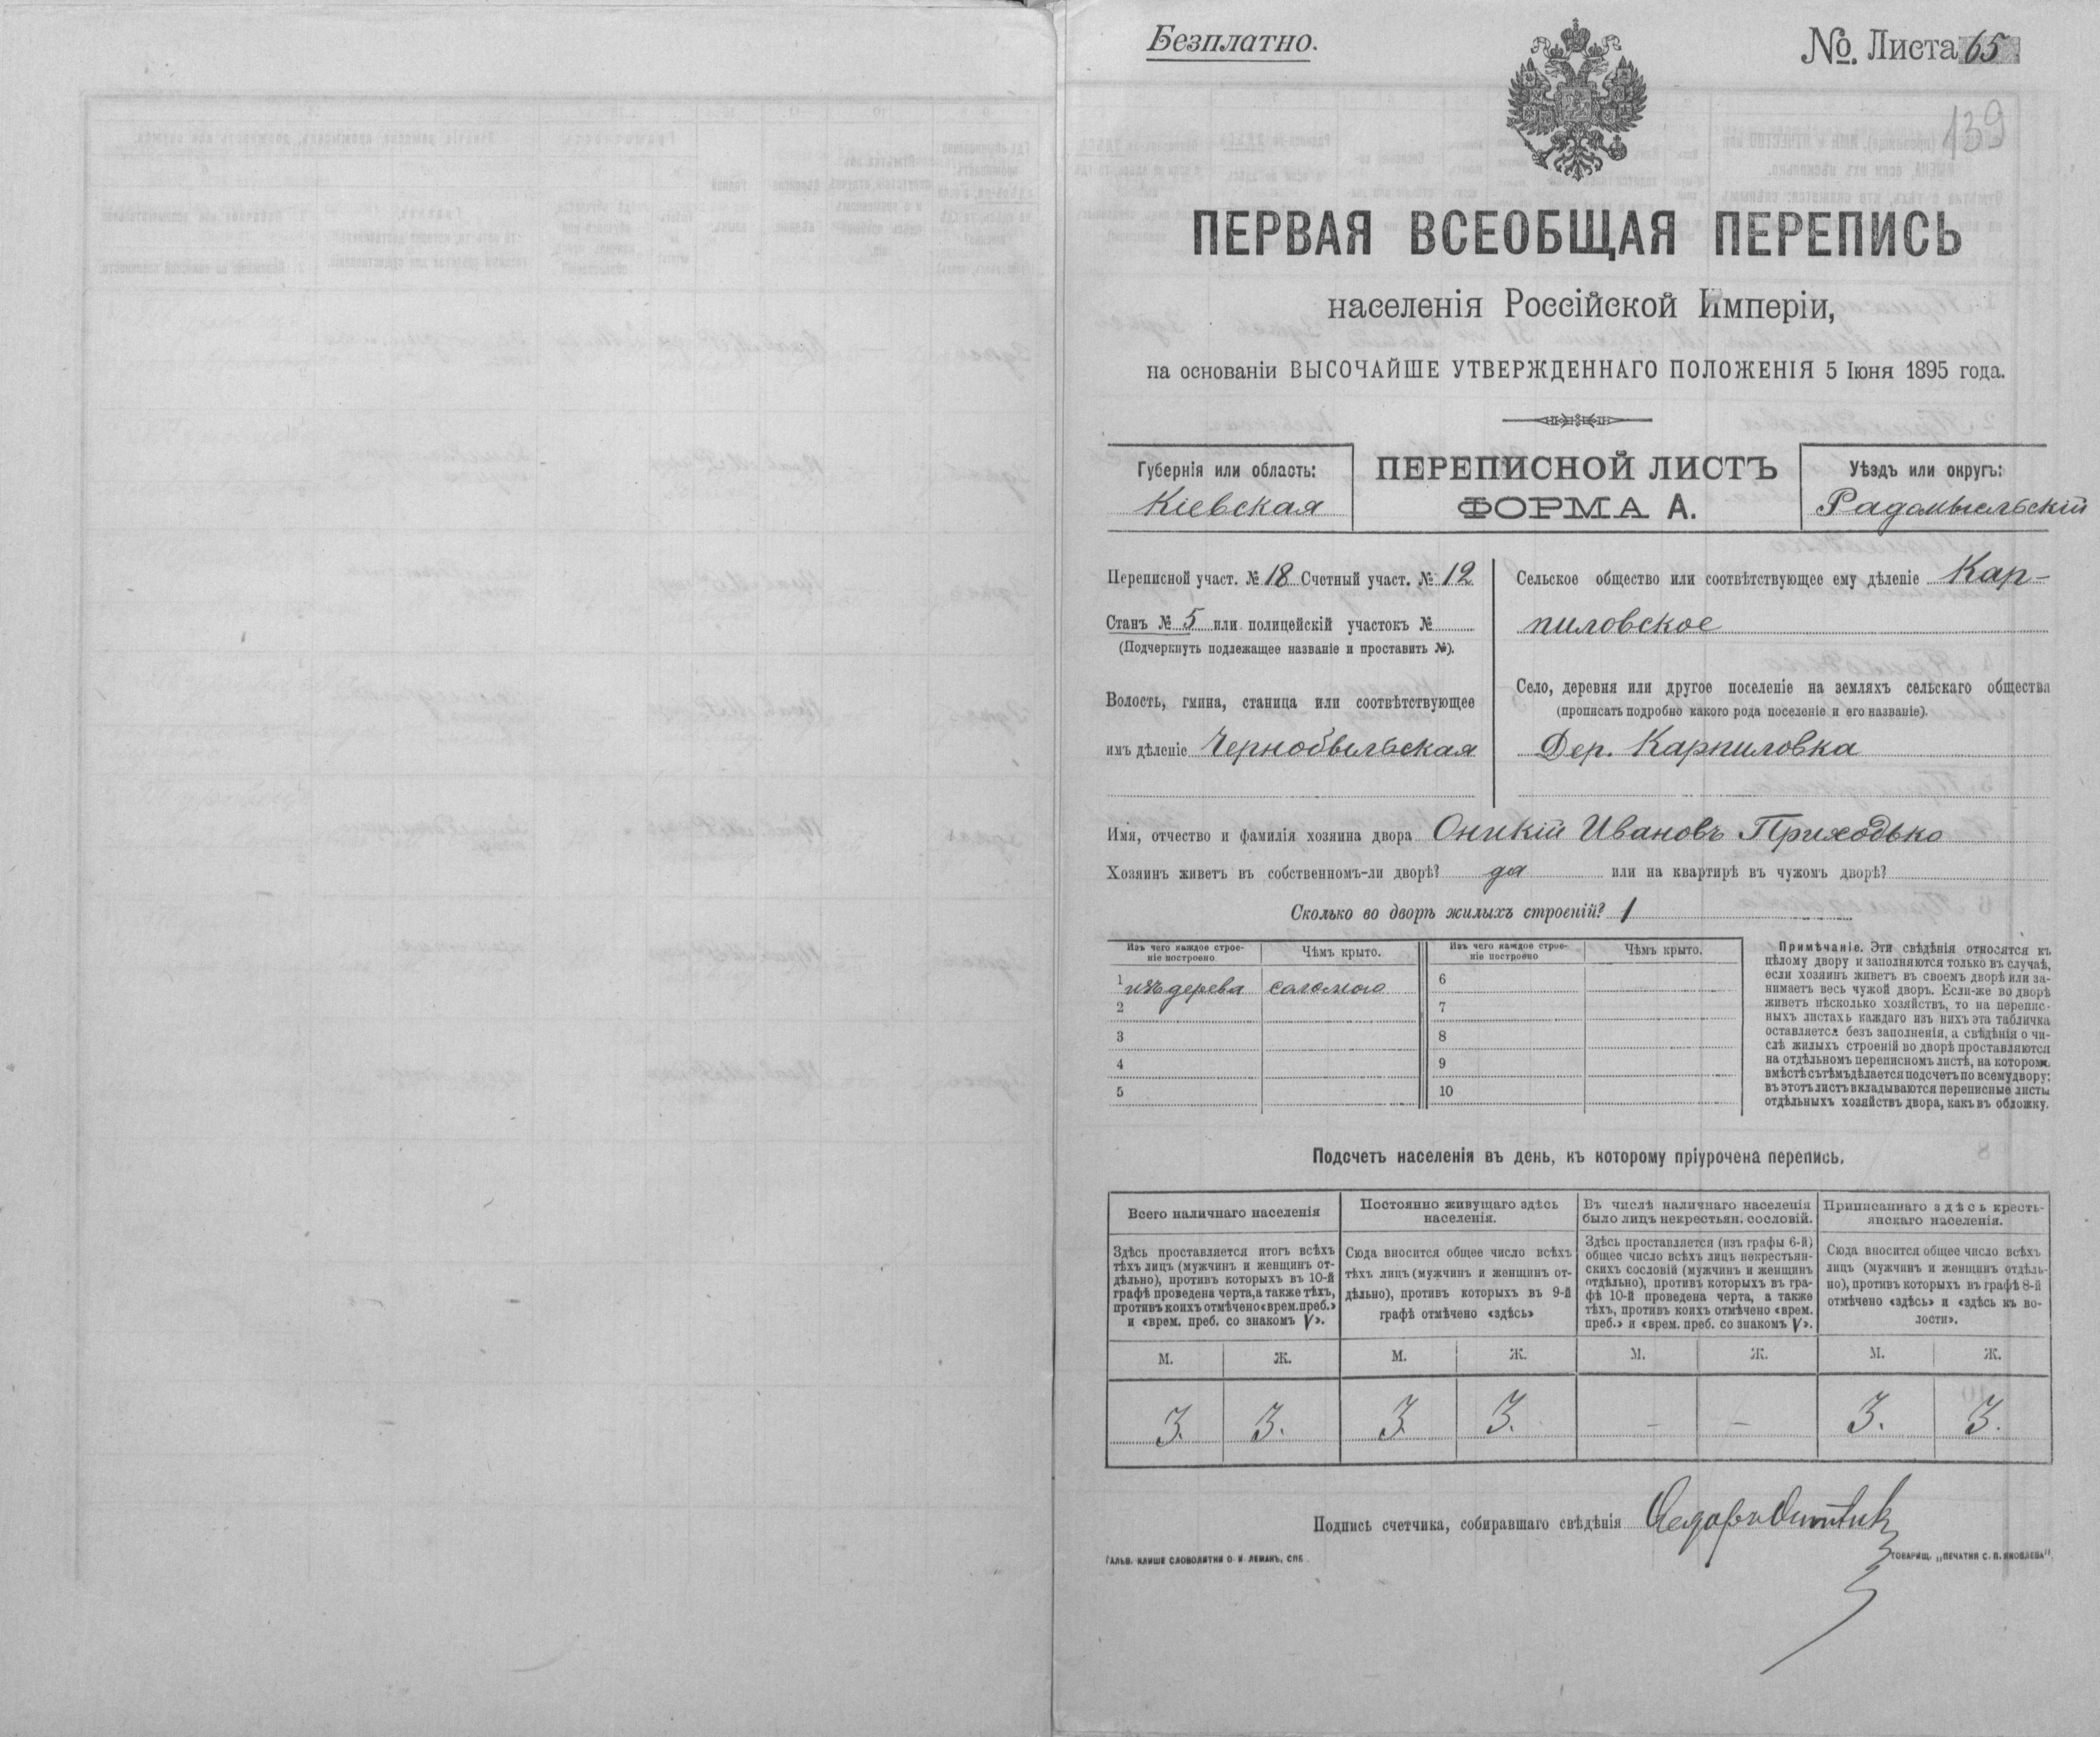 Безплатно.
№. Листа 65
139
ПЕРВАЯ ВСЕОБЩАЯ ПЕРЕПИСЬ
населенія Россійской Имперіи,
на основаніи ВЫСОЧАЙШЕ УТВЕРЖДЕННАГО ПОЛОЖЕНІЯ 5 Іюня 1895 года.
Губернія или область:
Кіевская
ПЕРЕПИСНОЙ ЛИСТЪ
ФОРМА А.
Уѣздъ или округъ:
Радомысльскій
Переписной участ. № 18 Счетный участ. № 12
Станъ № 5 или полицейскій участокъ №
(Подчеркнуть подлежащее названіе и проставить №).
Волость, гмина, станица или соотвѣтствующее
имъ дѣленіе Чернобыльская
Сельское общество или соотвѣтствующее ему дѣленіе Кар-
пиловское
Село, деревня или другое поселеніе на земляхъ сельскаго общества
(прописать подробно какого рода поселеніе и его названіе).
Дер. Карпиловка
Имя, отчество и фамилія хозяина двора Оникій Ивановъ Приходько
Хозяинъ живетъ въ собственномъ-ли дворѣ? да или на квартирѣ въ чужомъ дворѣ?
Сколько во дворѣ жилыхъ строеній? 1
Изъ чего каждое строе-
ніе построено
Чѣмъ крыто.
Изъ чего каждое строе-
ніе построено
Чѣмъ крыто.
1 изъ дерева соломою
2
3
4
5
6
7
8
9
10
Примѣчаніе. Эти свѣдѣнія относятся къ
цѣлому двору и заполняются только въ случаѣ,
если хозяинъ живетъ въ своемъ дворѣ или за-
нимаетъ весь чужой дворъ. Если-же во дворѣ
живетъ нѣсколько хозяйствъ, то на перепис-
ныхъ листахъ каждаго изъ нихъ эта табличка
оставляется безъ заполненія, а свѣдѣнія о чи-
слѣ жилыхъ строеній во дворѣ проставляются
на отдѣльномъ переписномъ листѣ, на которомъ
вмѣстѣ съ тѣмъ дѣлается подсчетъ по всему двору;
въ этотъ листъ вкладываются переписные листы
отдѣльныхъ хозяйствъ двора, какъ въ обложку.
Подсчетъ населенія въ день, къ которому пріурочена перепись.
Всего наличнаго населенія
Здѣсь проставляется итогъ всѣхъ
тѣхъ лицъ (мужчинъ и женщинъ от-
дѣльно), противъ которыхъ въ 10-й
графѣ проведена черта, а также тѣхъ,
противъ коихъ отмѣчено «врем. преб.»
и «врем. преб. со знакомъ V».
Постоянно живущаго здѣсь
населенія.
Сюда вносится общее число всѣхъ
тѣхъ лицъ (мужчинъ и женщинъ от-
дѣльно), противъ которыхъ въ 9-й
графѣ отмѣчено «здѣсь»
Въ числѣ наличнаго населенія
было лицъ некрестьян. сословій.
Здѣсь проставляется (изъ графы 6-й)
общее число всѣхъ лицъ некрестьян-
скихъ сословій (мужчинъ и женщинъ
отдѣльно), противъ которыхъ въ гра-
фѣ 10-й проведена черта, а также
тѣхъ, противъ коихъ отмѣчено «врем.
преб.» и «врем. преб. со знакомъ V».
Приписаннаго здѣсь кресть-
янскаго населенія.
Сюда вносится общее число всѣхъ
лицъ (мужчинъ и женщинъ отдѣль-
но), противъ которыхъ въ графѣ 8-й
отмѣчено «здѣсь» и «здѣсь къ во-
лости».
М. Ж. М. Ж. М. Ж. М. Ж.
3. 3. 3 3. - - 3. 3.
Подпись счетчика, собиравшаго свѣдѣнія
ГАЛЬВ. КЛИШЕ СЛОВОЛИТНИ О. И. ЛЕМАНЪ, СПБ
ТОВАРИЩ. „ПЕЧАТНЯ С. П. ЯКОВЛЕВА"